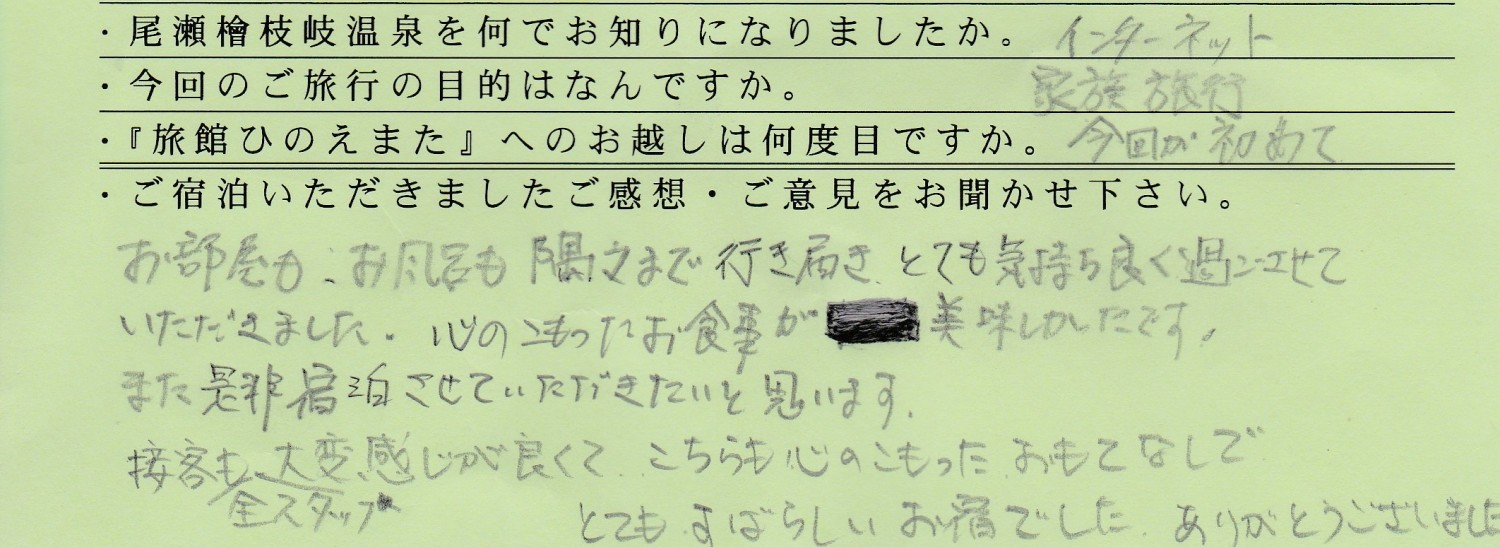 ・尾瀬檜枝岐温泉を何でお知りになりましたか。 インターネット
・今回のご旅行の目的はなんですか。 家族旅行
・『旅館ひのえまた』へのお越しは何度目ですか。 今回が初めて
・ご宿泊いただきましたご感想・ご意見をお聞かせ下さい。
お部屋も、お風呂も隅々まで行き届き、とても気持ち良く過ごさせて
いただきました。心のこもったお食事が 美味しかったです。
また是非宿泊させていただきたいと思います。
接客も大変感じが良くて、こちらも心のこもったおもてなしで
全スタッフ
とてもすばらしいお宿でした。ありがとうございました